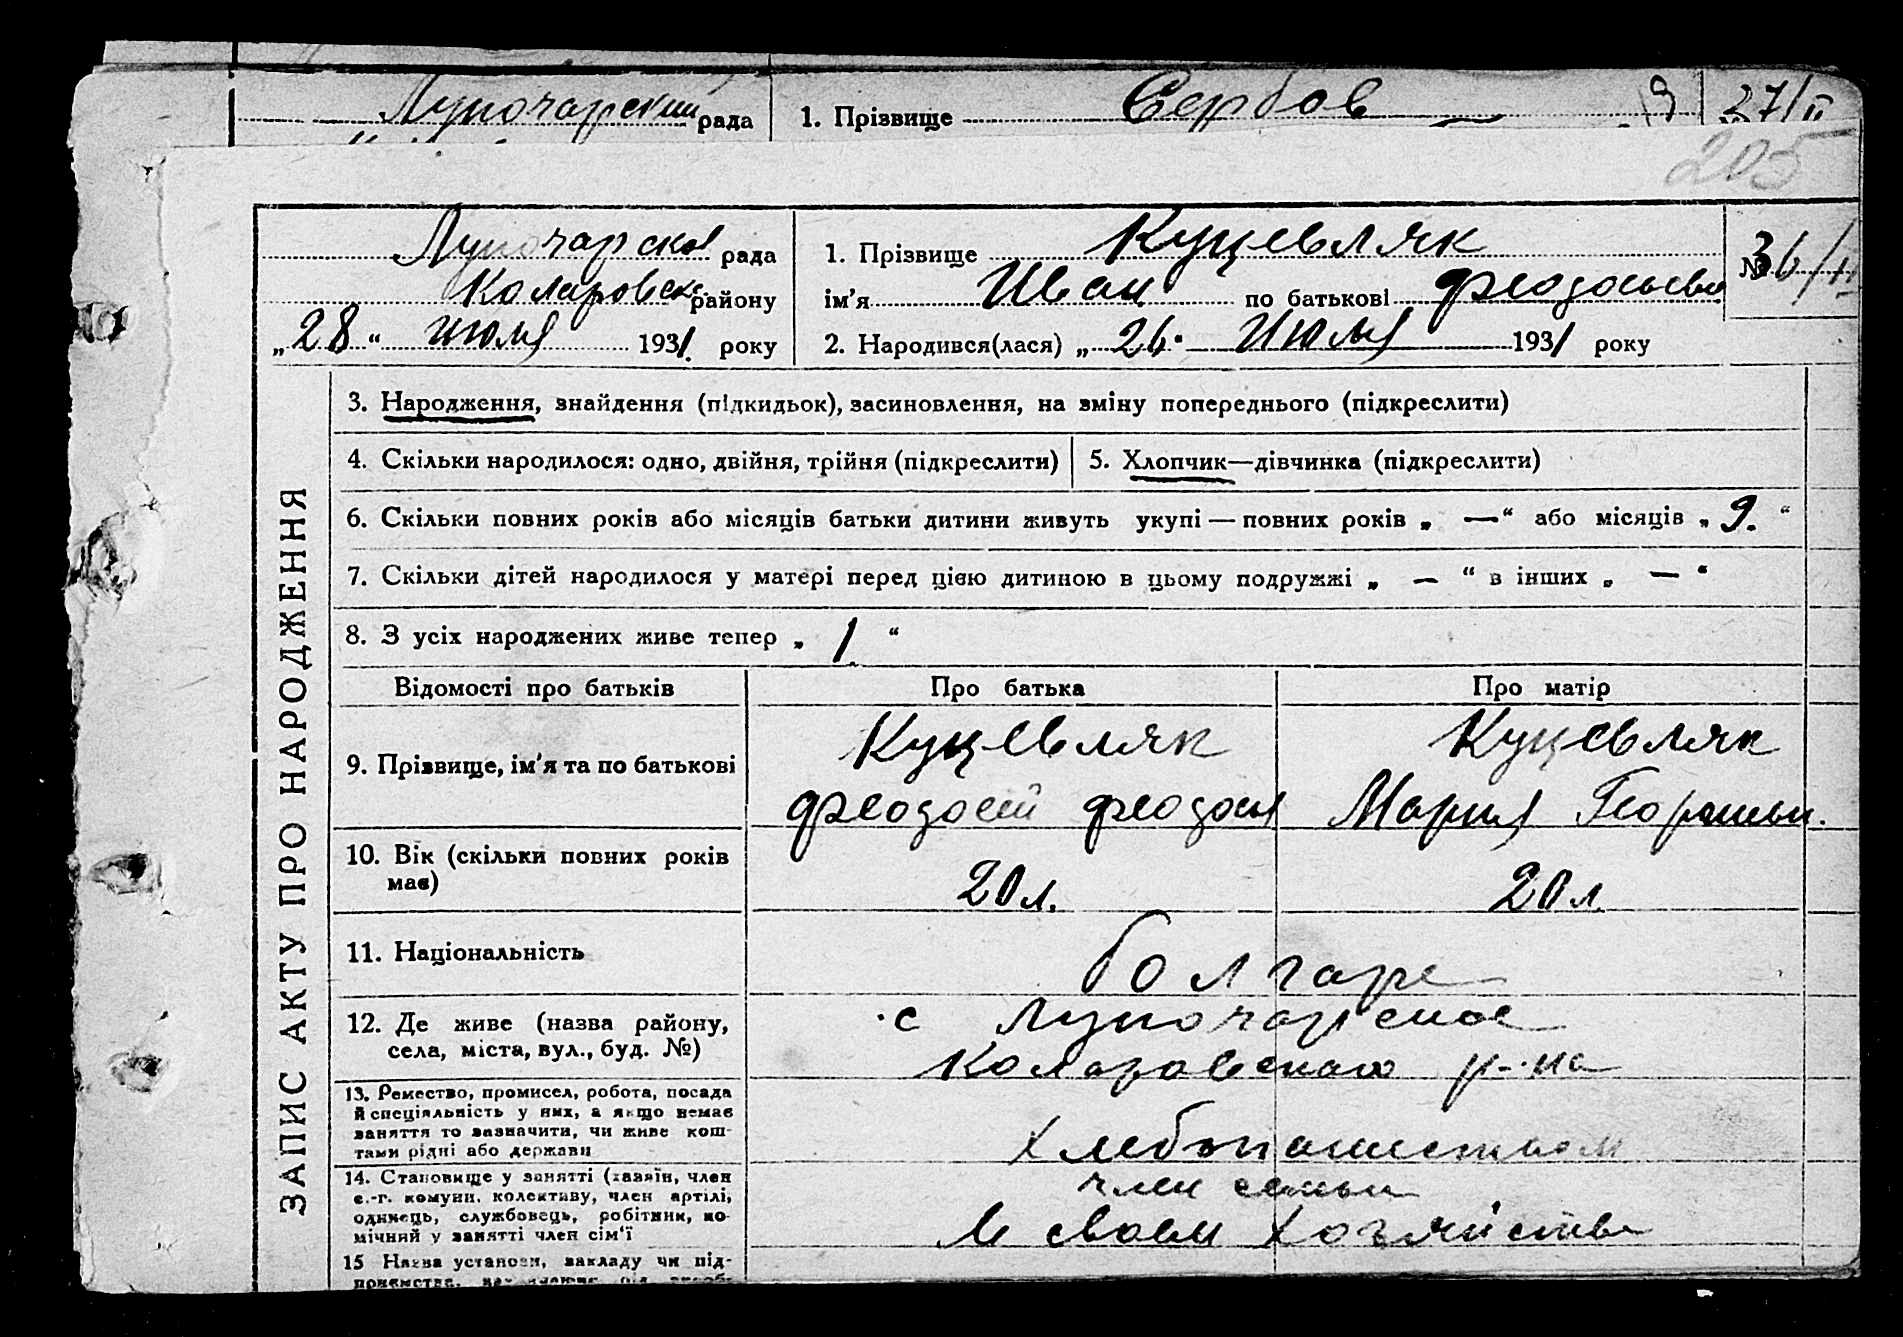 Луночарский рада
1. Прізвище Сербов
37/II
205
Луночарской рада
Коларовск. району
„28“ июля 1931 року
1. Прізвище Куцевляк
ім'я Иван по батькові Феодосьеви
2. Народився(лася) „26“ Июля 1931 року
№ 36/II
ЗАПИС АКТУ ПРО НАРОДЖЕННЯ
3. Народження, знайдення (підкидьок), засиновлення, на зміну попереднього (підкреслити)
4. Скільки народилося: одно, двійня, трійня (підкреслити)
5. Хлопчик—дівчинка (підкреслити)
6. Скільки повних років або місяців батьки дитини живуть укупі — повних років „ — “ або місяців „ 9. “
7. Скільки дітей народилося у матері перед цією дитиною в цьому подружжі „ — “ в інших „ — “
8. З усіх народжених живе тепер „ 1 “
Відомості про батьків
Про батька
Про матір
9. Прізвище, ім'я та по батькові
Куцевляк
Феодосий Феодось
Куцевляк
Мария Георгиевн.
10. Вік (скільки повних років
має)
20 л.
20 л.
11. Національність
болгаре
12. Де живе (назва району,
села, міста, вул., буд. №)
с Луночарское
Коларовского р-на
13. Ремество, промисел, робота, посада
й спеціяльність у них, а якщо немає
заняття то зазначити, чи живе кош-
тами рідні або держави
Хлебопашеством
14. Становище у занятті (хазяїн, член
с.-г. комуни, колективу, член артілі,
одинець, службовець, робітник, по-
мічний у занятті член сім'ї
член семьи
в своем хозяйстве
15 Назва установи, закладу чи під-